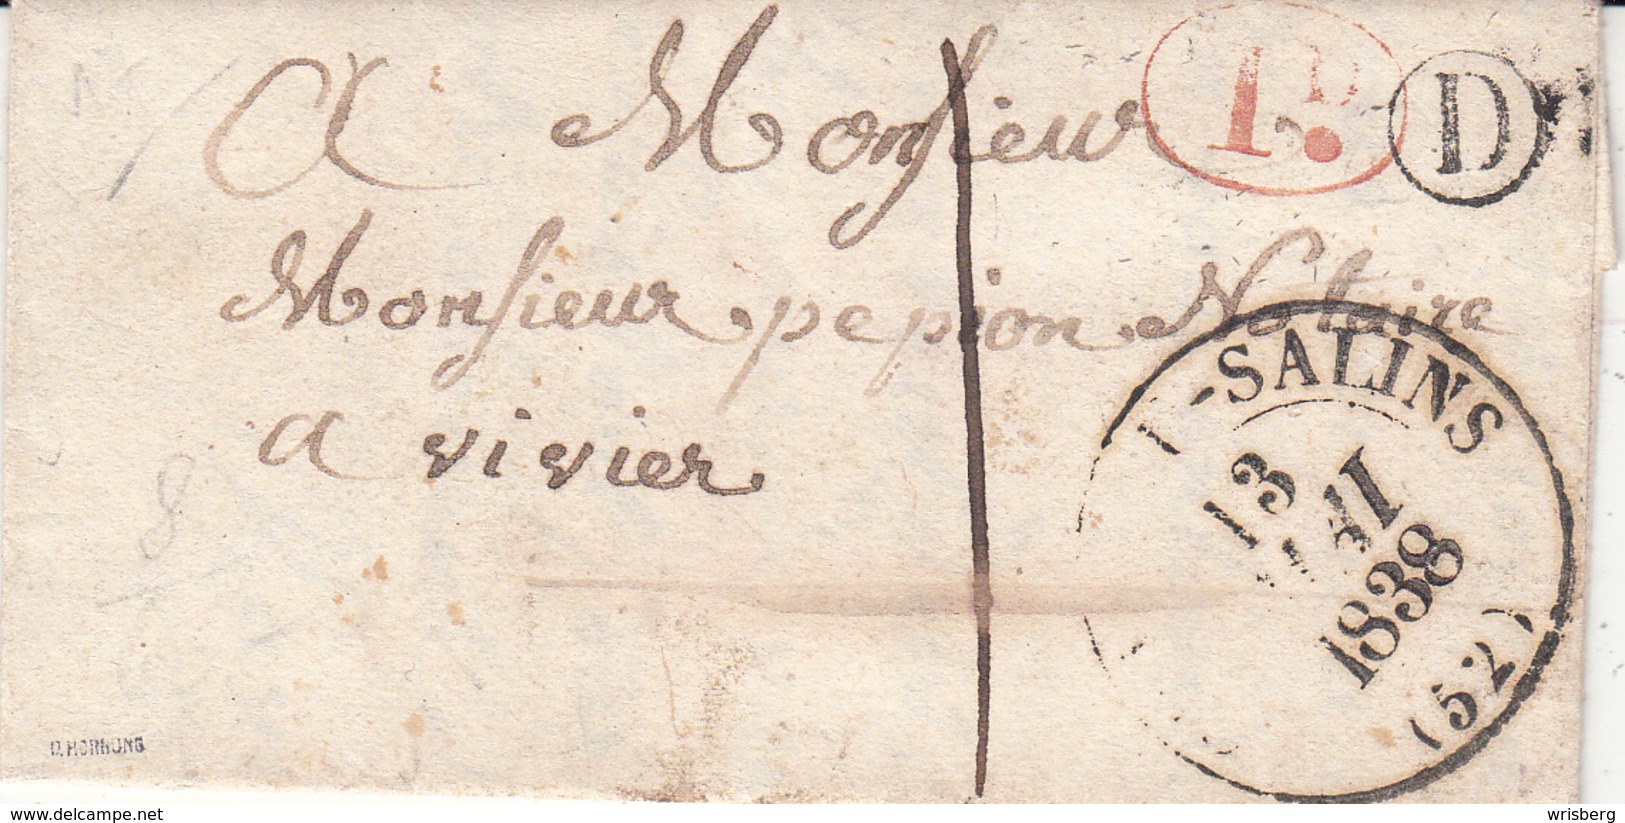 A Monsieur
1D
D
Monsieur pepion Notaire
a vivier
-SALINS
13
1838
(52)
D. HORNUNG
www.delcampe.net
wrisberg